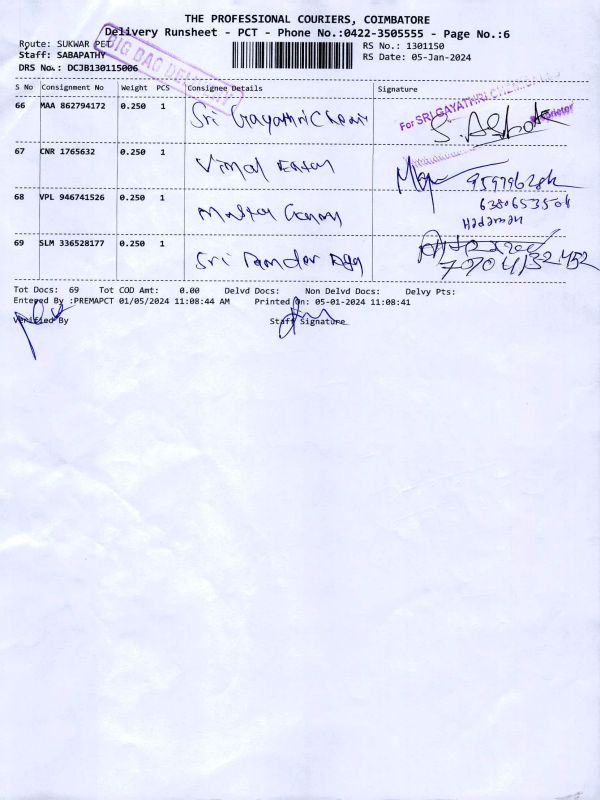 THE PROFESSIONAL COURIERS, COIMBATORE
Delivery Runsheet - PCT - Phone No.:0422-3505555 - Page No.:6
Route: SUKWAR PET
RS No.: 1301150
Staff: SABAPATHY
RS Date: 05-Jan-2024
DRS No.: DCJB130115006
BIG BAG DELIVERY
S No Consignment No Weight PCS Consignee Details Signature
66 MAA 862794172 0.250 1 Sri Gayathri Chemi
For SRI GAYATHRI CHEMICALS
S. Ashok
Proprietor
67 CNR 1765632 0.250 1 Vimal
68 VPL 946741526 0.250 1
6380653508
69 SLM 336528177 0.250 1 Sri
Tot Docs: 69 Tot COD Amt: 0.00 Delvd Docs: Non Delvd Docs: Delvy Pts:
Entered By :PREMAPCT 01/05/2024 11:08:44 AM Printed On: 05-01-2024 11:08:41
Verified By Staff Signature